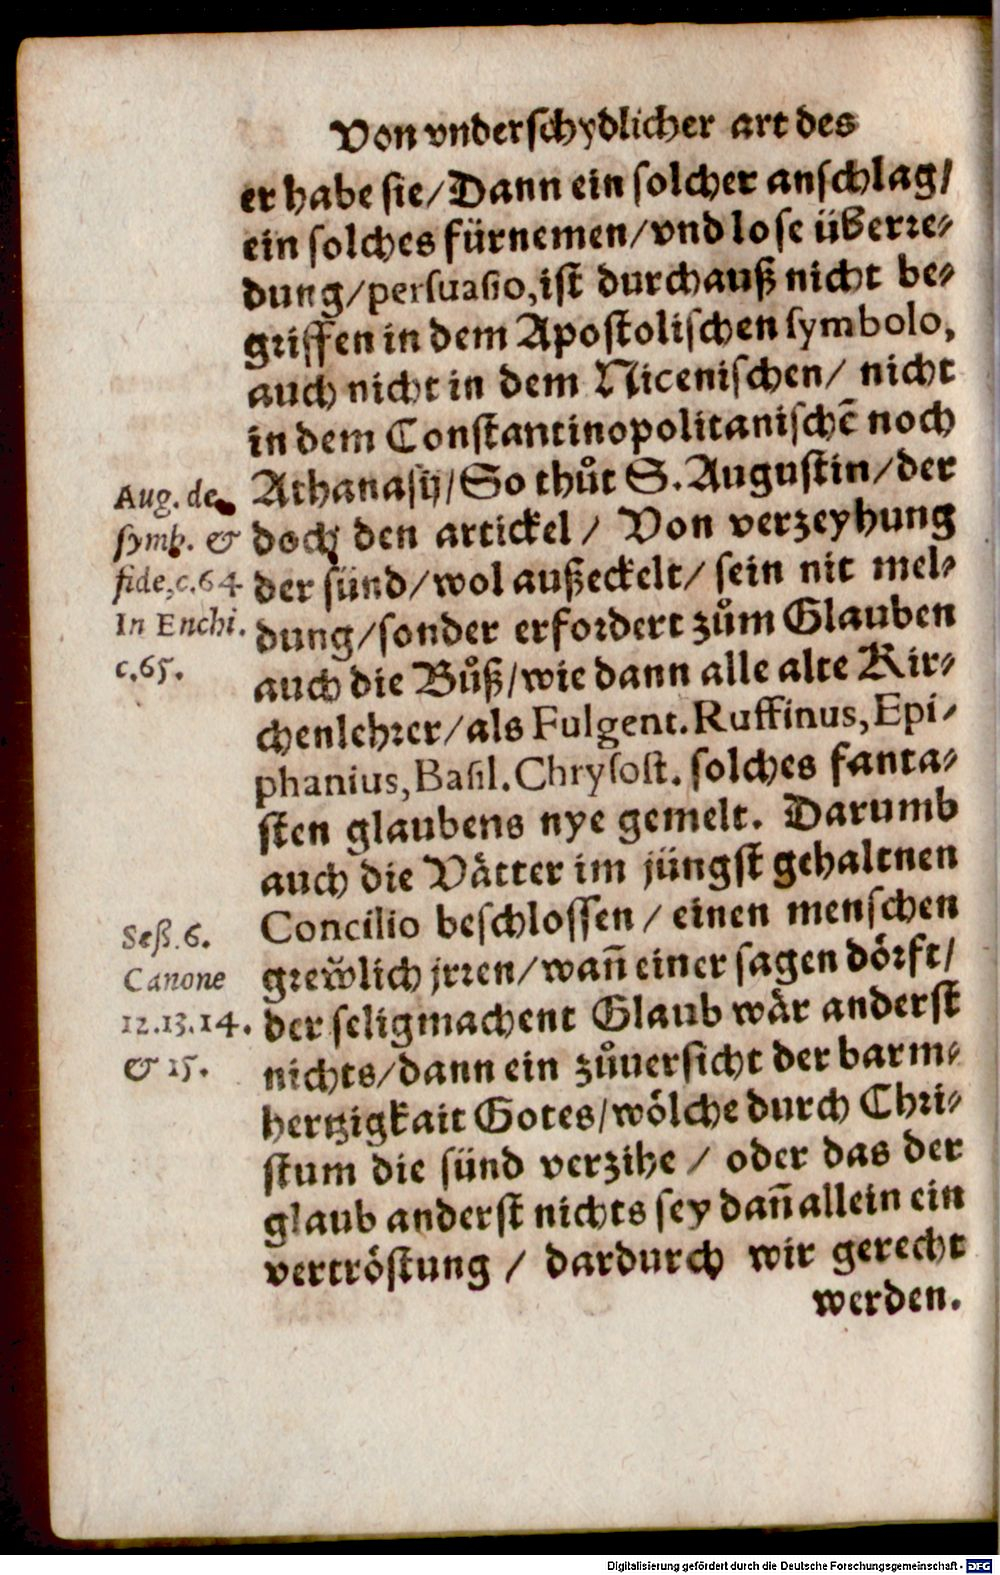 Von vnderschydlicher art des
er habe sie/Dann ein solcher anschlag/
ein solches fürnemen/vnd lose überre⸗
dung/persuasio,ist durchauß nicht be⸗
griffen in dem Apostolischen symbolo,
auch nicht in dem Nicenischen/ nicht
in dem Constantinopolitanischē noch
Athanasij/So thůt S. Augustin/der
doch den artickel / Von verzeyhung
der sünd/wol außeckelt/ sein nit mel⸗
dung/sonder erfordert zům Glauben
auch die Bůß/wie dann alle alte Kir⸗
chenlehrer/als Fulgent. Ruffinus, Epi⸗
phanius, Basil. Chrysost. solches fanta⸗
sten glaubens nye gemelt. Darumb
auch die Vätter im jüngst gehaltnen
Concilio beschlossen / einen menschen
grewlich jrren/wañ einer sagen dörft/
der seligmachent Glaub wär anderst
nichts/dann ein zůuersicht der barm⸗
hertzigkait Gotes/wölche durch Chri⸗
stum die sünd verzihe / oder das der
glaub anderst nichts sey dañ allein ein
vertröstung / dardurch wir gerecht
werden.
Aug. de
symb. &
fide,c.64
In Enchi.
c.65.
Seß.6.
Canone
12.13.14.
& 15.
Digitalisierung gefördert durch die Deutsche Forschungsgemeinschaft - DFG